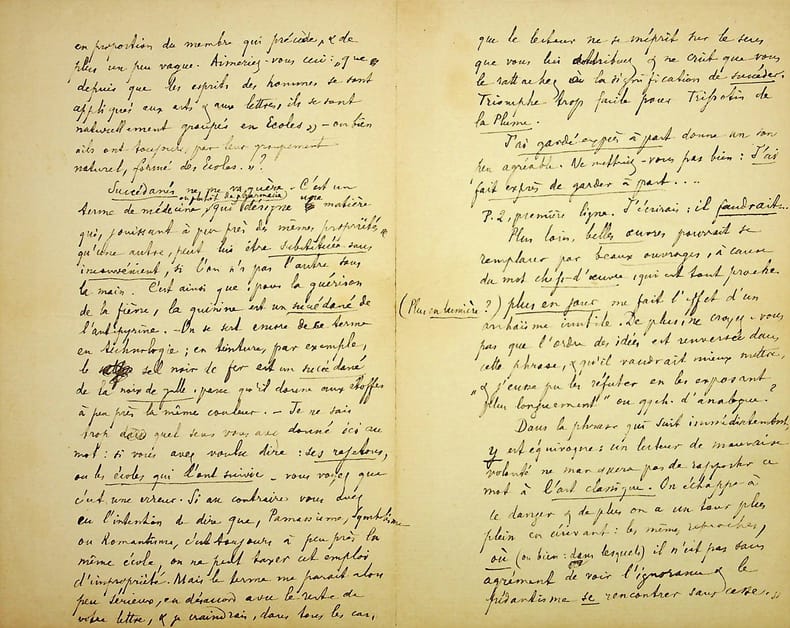 en proportion du membre qui précède, & de
plus un peu vague. Aimeriez-vous ceci: "que
depuis que les esprits des hommes se sont
appliqués aux arts & aux lettres, ils se sont
naturellement groupés en Ecoles" - ou bien
"ils ont toujours, par leur groupement
naturel, formé des Ecoles."?
Succédanés ne me va guère. - C'est un
ou plutôt de pharmacie
terme de médecine, qui désigne une matière
qui, jouissant à peu près des mêmes propriétés
qu'une autre, peut lui être substituée sans
inconvénient, si l'on n'a pas l'autre sous
la main. C'est ainsi que, pour la guérison
de la fièvre, la quinine est un succédané de
l'antipyrine. - On se sert encore de ce terme
en technologie; en teinture, par exemple,
le sel noir de fer est un succédané
de la noix de galle, parce qu'il donne aux étoffes
à peu près la même couleur. - Je ne sais
trop dans quel sens vous avez donné ici ce
mot: si vous avez voulu dire: ses rejetons,
ou les écoles qui l'ont suivie - vous voyez que
c'est une erreur. Si au contraire vous avez
eu l'intention de dire que, Parnassisme, Symbolisme
ou Romantisme, c'est toujours à peu près la
même école, on ne peut taxer cet emploi
d'impropriété. Mais le terme me paraît alors
peu sérieux, en désaccord avec le reste de
votre lettre, & je craindrais, dans tous les cas,
que le lecteur ne se méprît sur le sens
que vous lui attribuez & ne crût que vous
le rattachez à la signification de succéder.
Triomphe trop facile pour Trissotin de
la Plume.
J'ai gardé exprès à part donne un son
peu agréable. Ne mettriez-vous pas bien: J'ai
fait exprès de garder à part....
P. 2, première ligne. J'écrirais: il faudrait...
Plus loin, belles œuvres pourrait se
remplacer par beaux ouvrages, à cause
du mot chefs-d'œuvre, qui est tout proche.
(Plus en lumière?) plus en jour me fait l'effet d'un
archaïsme inutile. De plus, ne croyez-vous
pas que l'ordre des idées est renversé dans
cette phrase, & qu'il vaudrait mieux mettre,
"& j'eusse pu les réfuter en les exposant
plus longuement" ou qqch. d'analogue?
Dans la phrase qui suit immédiatement,
y est équivoque: un lecteur de mauvaise
volonté ne manquera pas de rapporter ce
mot à l'art classique. On échappe à
ce danger & de plus on a un tour plus
plein en écrivant: les mêmes reproches,
où (ou bien: dans lesquels) il n'est pas sans
agrément de voir l'ignorance & le
pédantisme se rencontrer sans cesse."